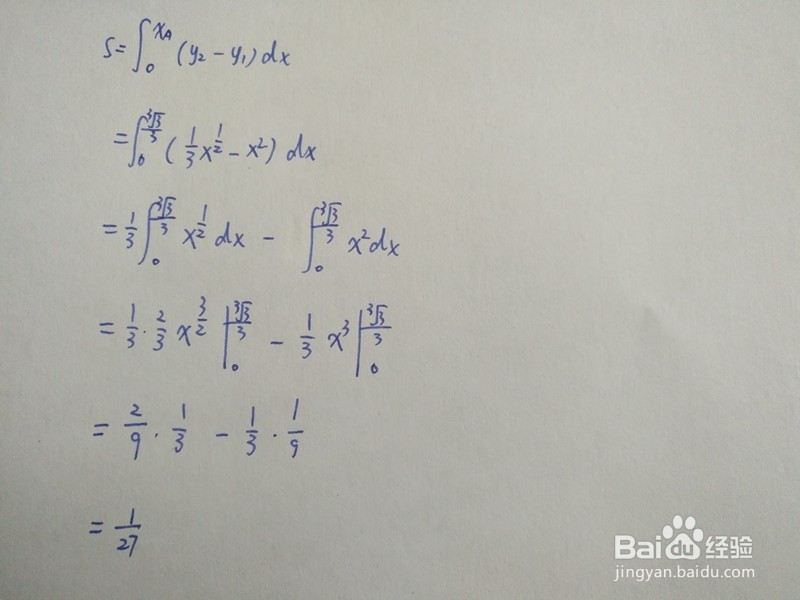 S=∫₀^{x_A} (y₂-y₁)dx
=∫₀^{∛3/3} (1/3 x^{1/2} - x²) dx
=1/3 ∫₀^{∛3/3} x^{1/2} dx - ∫₀^{∛3/3} x² dx
=1/3 · 2/3 x^{3/2} |₀^{∛3/3} - 1/3 x³ |₀^{∛3/3}
=2/9 · 1/3 - 1/3 · 1/9
=1/27
Baidu经验
jingyan.baidu.com